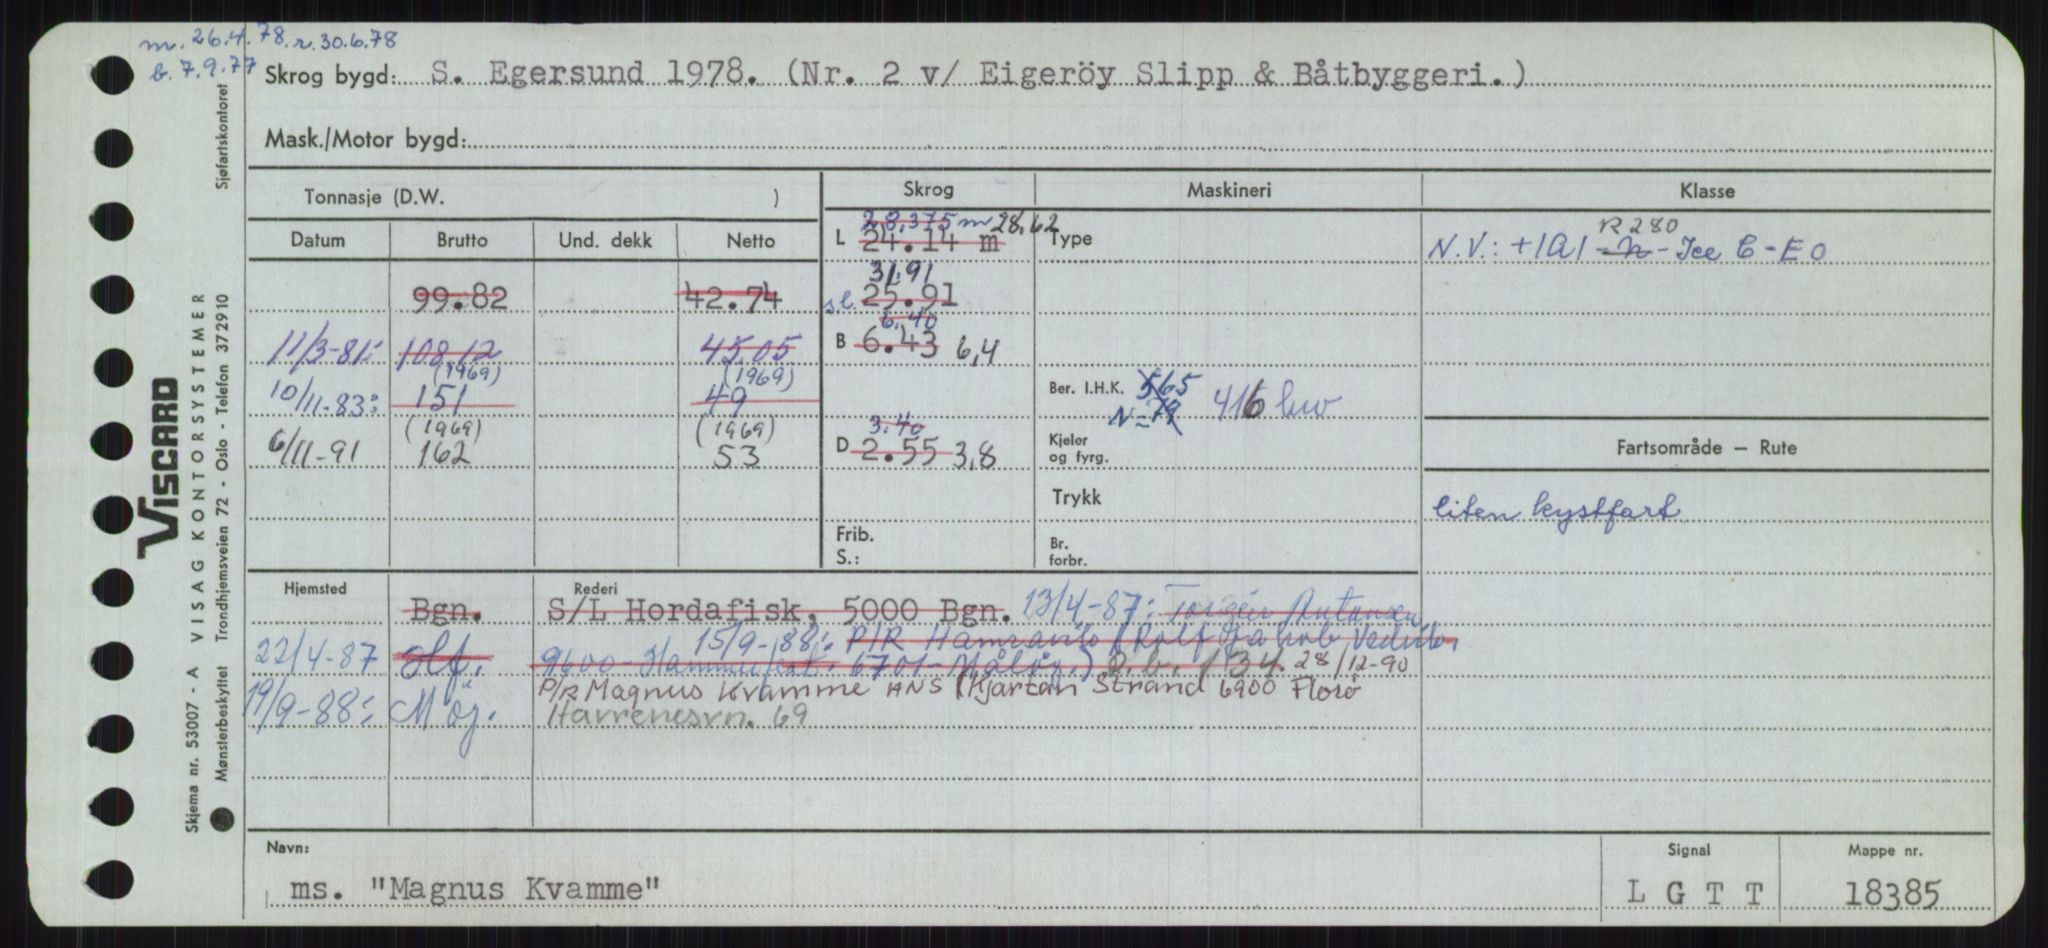 m. 26.4.78. r. 30.6.78
b. 7.9.77
Skrog bygd: S. Egersund 1978. (Nr. 2 v/ Eigeröy Slipp & Båtbyggeri.)
Mask./Motor bygd:
Tonnasje (D.W. )
Skrog
Maskineri
Klasse
Datum Brutto Und. dekk Netto
28,375 m 28,62
L 24.14 m
Type
R280
N.V.: +1A1 - - Ice C - EO
31.91
99.82 42.74
s.l. 25.91
6.40
11/3-81: 108.12 45.05
B 6.43 6,4
(1969) (1969)
10/11-83: 151 49
Ber. I.H.K. 565
N = 79 416 kw
(1969) (1969)
6/11-91 162 53
3.40
D 2.55 3,8
Kjeler
og fyrg.
Fartsområde – Rute
Trykk
liten kystfart
Frib.
S.:
Br.
forbr.
Hjemsted
Rederi
Bgn. S/L Hordafisk, 5000 Bgn. 13/4-87: Torgeir Antonsen
15/9-88: P/R Hamravik (Rolf Jakob Vedvik,
22/4-87 Hf. 9600 - Hammerfest. 6701 - Måløy.) P.b. 134. 28/12-90
P/R Magnus Kvamme ANS (Kjartan Strand 6900 Florø
19/9-88: Möy. Havrenesvn. 69
Navn:
ms. "Magnus Kvamme"
Signal
L G T T
Mappe nr.
18385
VISCARD
VISAG KONTORSYSTEMER
Skjema nr. 53007 - A
Mønsterbeskyttet Trondhjemsveien 72 - Oslo - Telefon 372910
Sjøfartskontoret